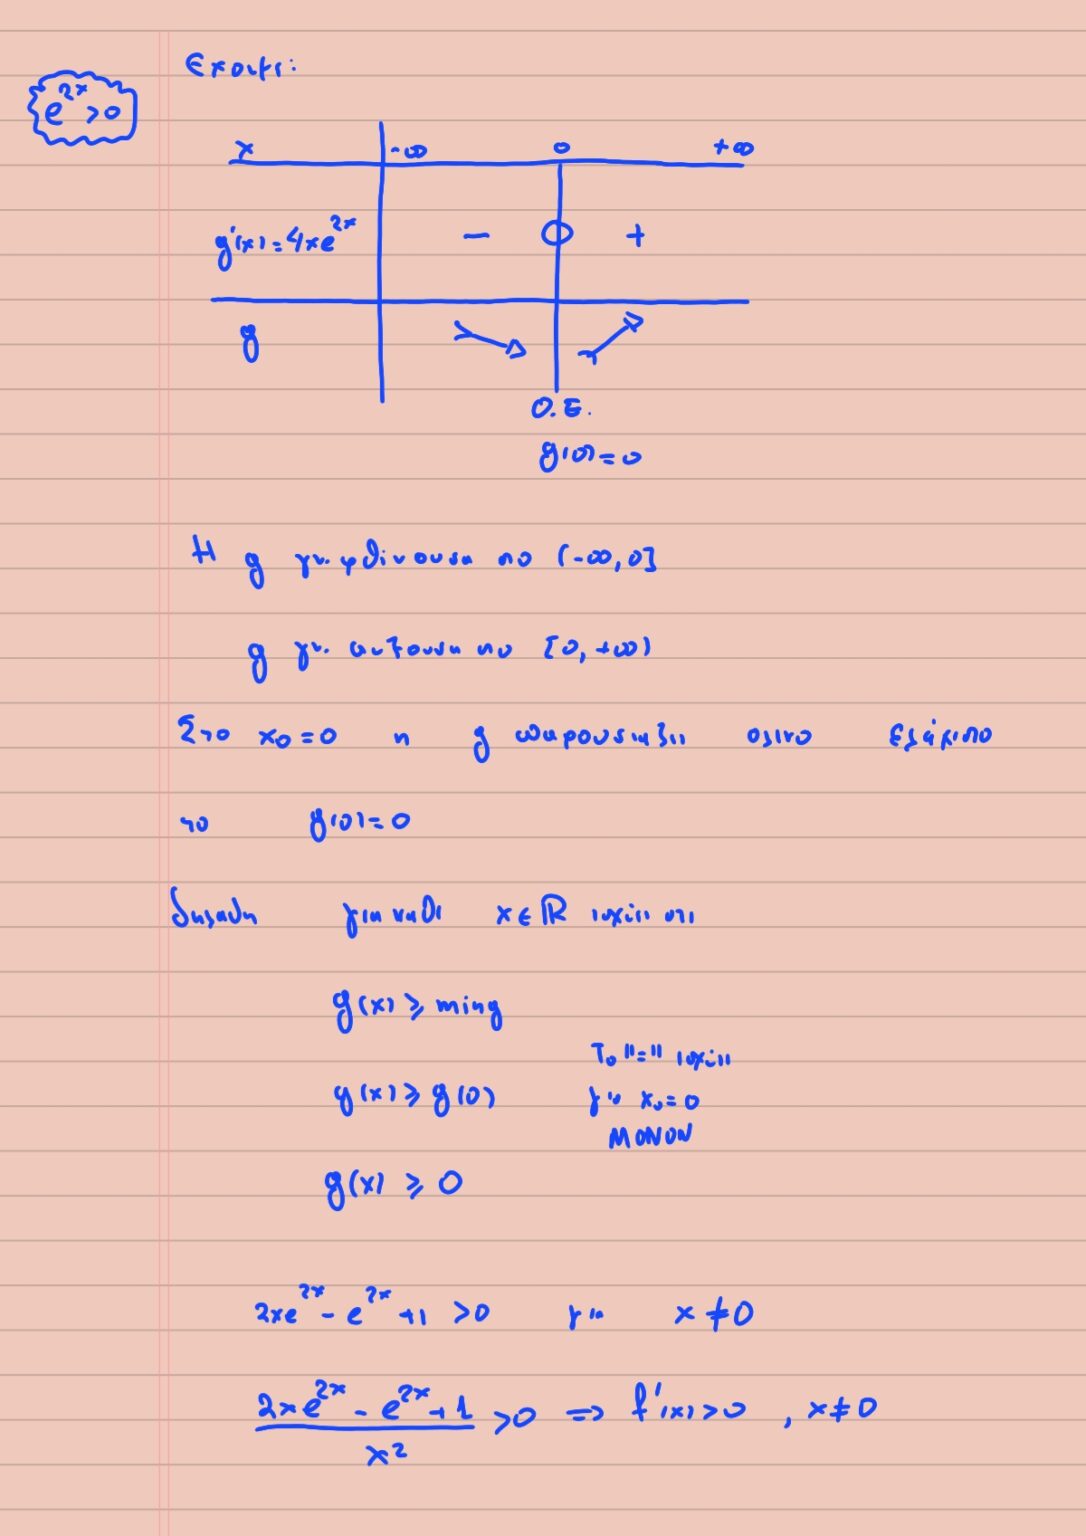 Έχουμε:
e^{2x} > 0
x -∞ 0 +∞
g'(x) = 4xe^{2x} - 0 +
g
Ο.Ε.
g(0) = 0
Η g γν. φθίνουσα στο (-∞, 0]
g γν. αύξουσα στο [0, +∞)
Στο x₀ = 0 η g παρουσιάζει ολικό ελάχιστο
το g(0) = 0
δηλαδή για κάθε x ∈ ℝ ισχύει ότι
g(x) ≥ min g
Το "=" ισχύει
g(x) ≥ g(0) για x₀ = 0
ΜΟΝΟΝ
g(x) ≥ 0
2xe^{2x} - e^{2x} + 1 > 0 για x ≠ 0
(2xe^{2x} - e^{2x} + 1)/x² > 0 ⇒ f'(x) > 0 , x ≠ 0